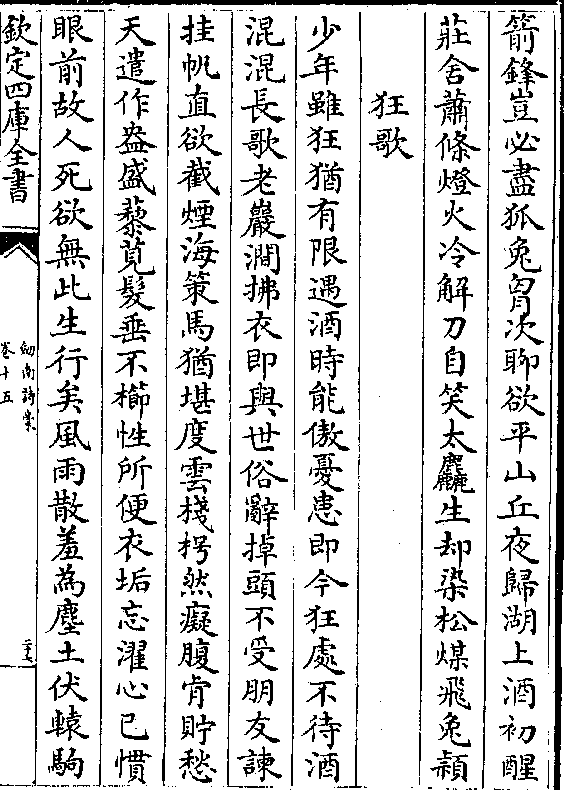 箭鋒豈必盡狐兔胷次聊欲平山丘夜歸湖上酒初醒
莊舍蕭條燈火冷解刀自笑太麤生却染松煤飛兔穎
狂歌
少年雖狂猶有限遇酒時能傲憂患即今狂處不待酒
混混長歌老巖澗拂衣即與世俗辭掉頭不受朋友諫
挂帆直欲截煙海策馬猶堪度雲棧枵然癡腹肯貯愁
天遣作盎盛藜莧髮垂不櫛性所便衣垢忘濯心已慣
眼前故人死欲無此生行矣風雨散羞為塵土伏轅駒
欽定四庫全書
劒南詩稾
卷十五
二十七